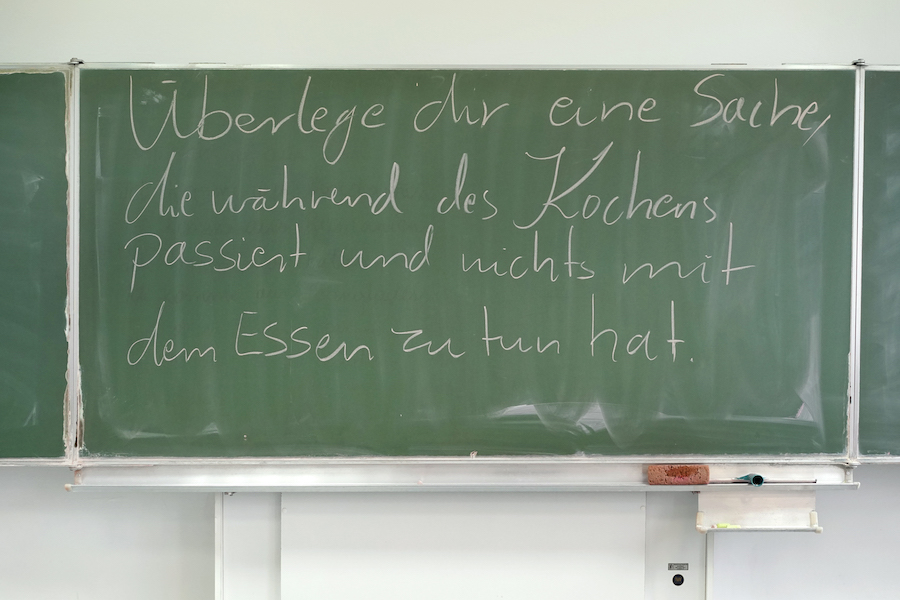 Überlege dir eine Sache,
die während des Kochens
passiert und nichts mit
dem Essen zu tun hat.